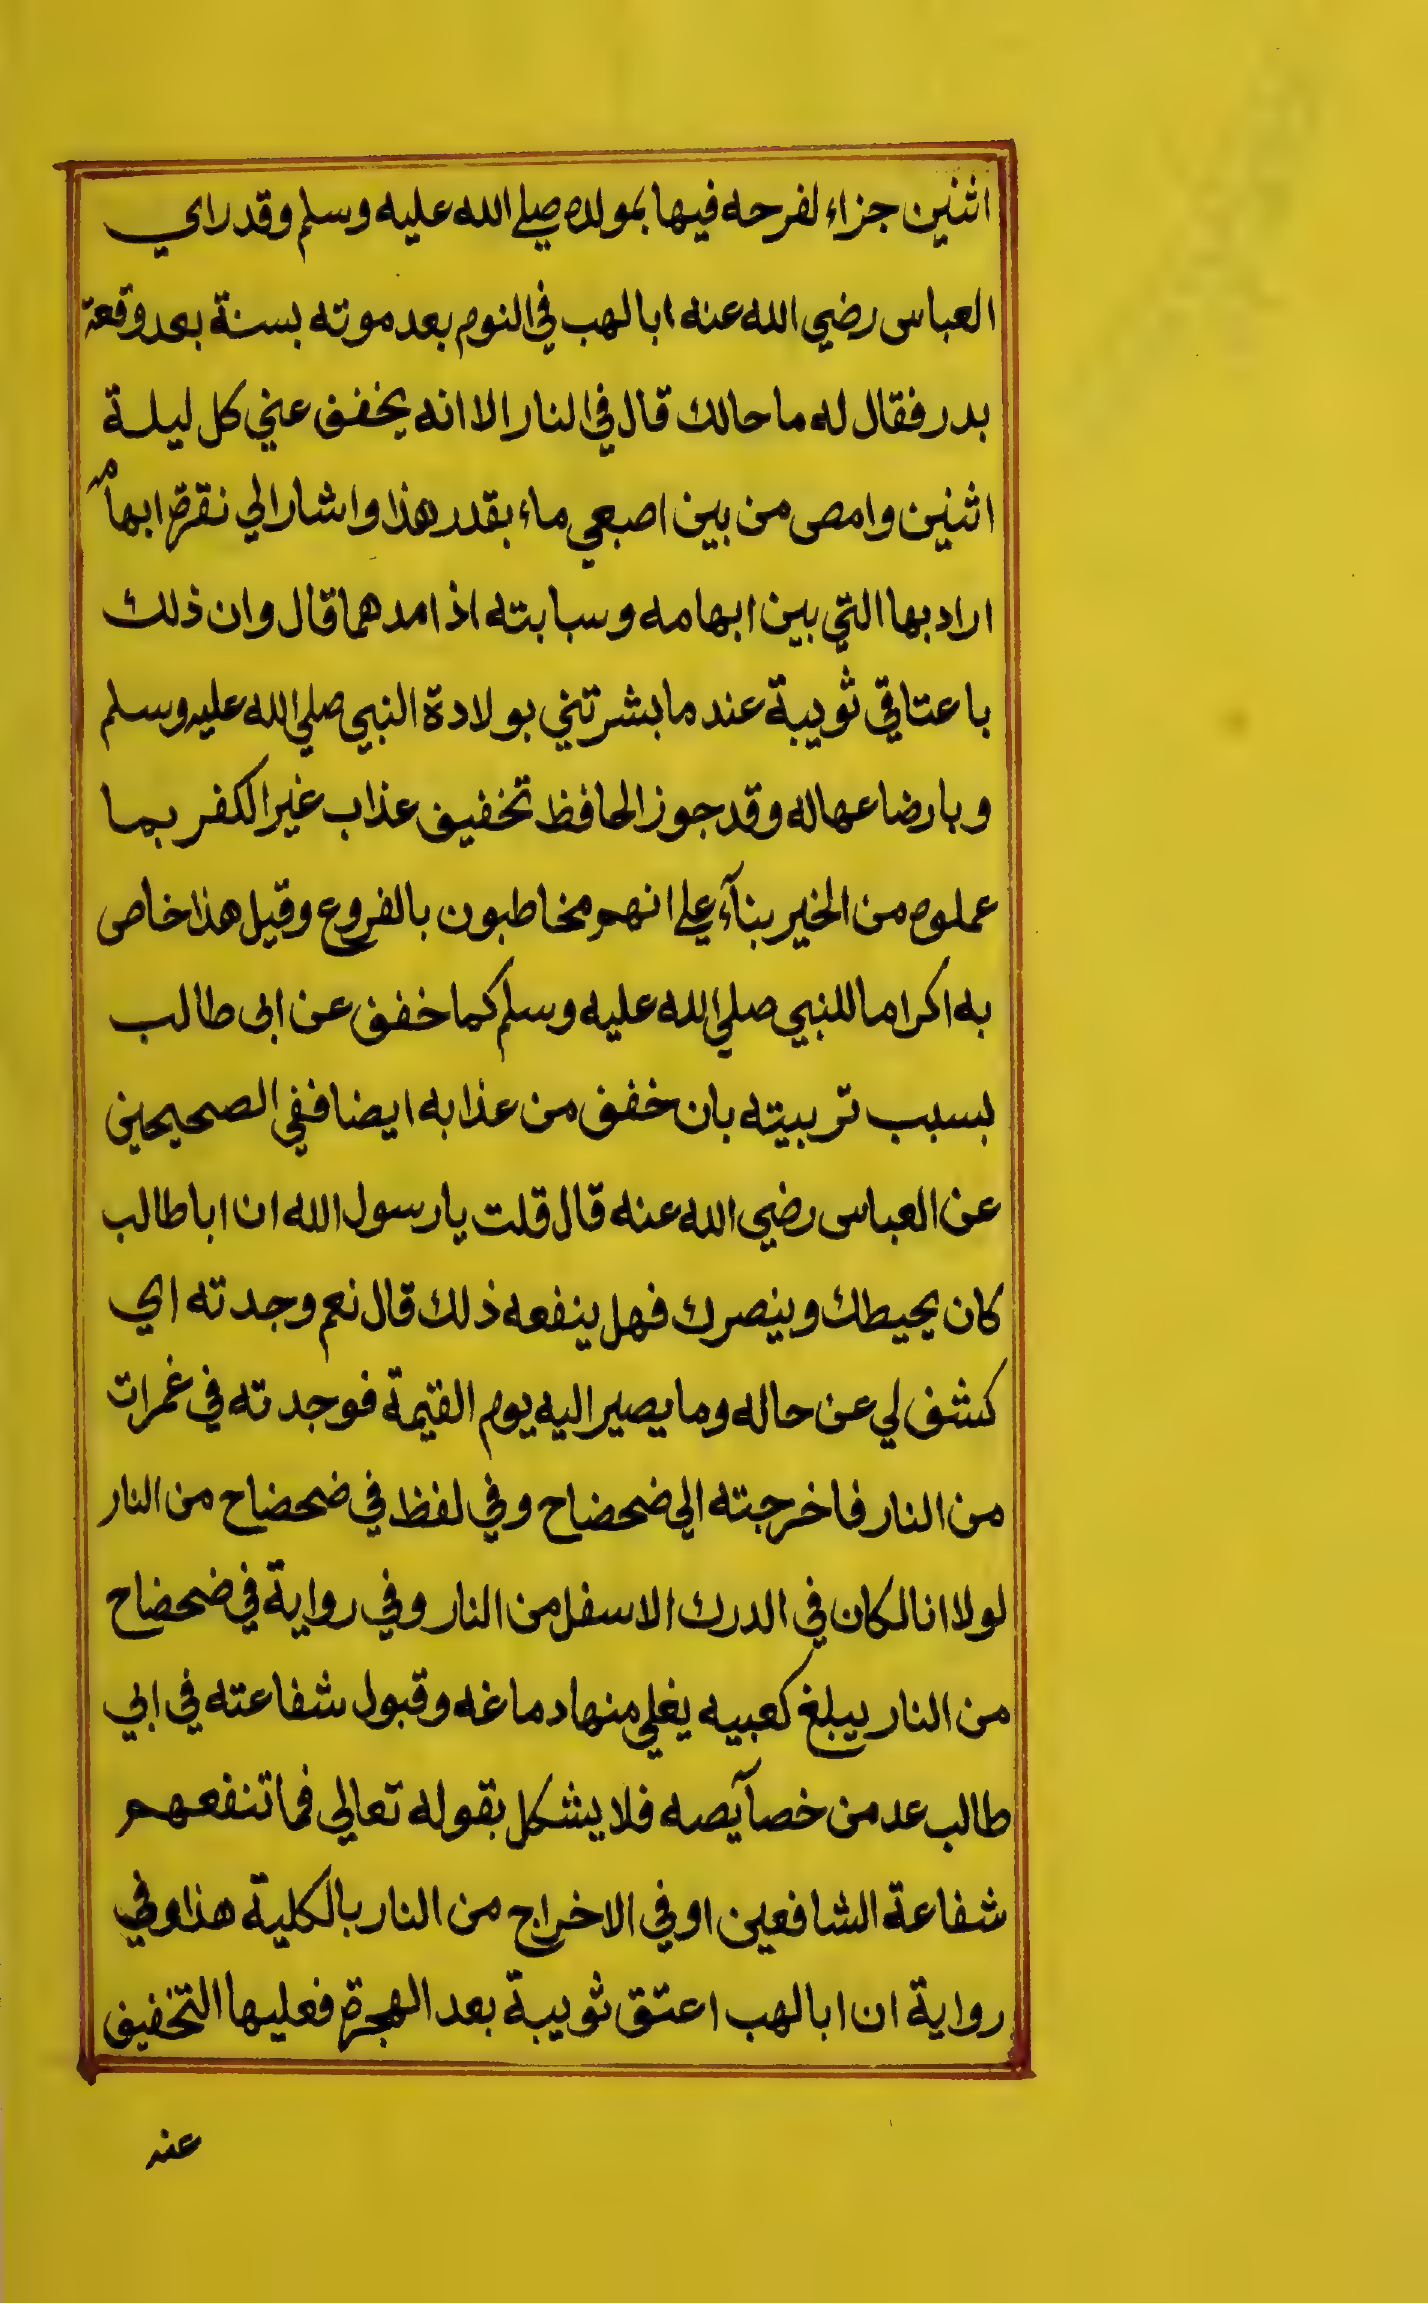 اثنين جزاء لفرحه فيها بمولده صلي الله عليه وسلم وقد راي
العباس رضي الله عنه ابا لهب في النوم بعد موته بسنة بعد وقعة
بدر فقال له ما حالك قال في النار الا انه يخفف عني كل ليلة
اثنين وامص من بين اصبعي ماء بقدر هذا واشار الي نقرة ابهامه
اراد بها التي بين ابهامه وسبابته اذ امدهما قال وان ذلك
باعتاقي ثويبة عند ما بشرتني بولادة النبي صلي الله عليه وسلم
وبارضاعها له وقد جوز الحافظ تخفيف عذاب غير الكفر بما
عملوه من الخير بنآء علي انهم مخاطبون بالفروع وقيل هذا خاص
به اكراما للنبي صلي الله عليه وسلم كما خفف عن ابي طالب
بسبب تربيته بان خفف من عذابه ايضا ففي الصحيحين
عن العباس رضي الله عنه قال قلت يا رسول الله ان ابا طالب
كان يحيطك وينصرك فهل ينفعه ذلك قال نعم وجدته اي
كشف لي عن حاله وما يصير اليه يوم القيمة فوجدته في غمرات
من النار فاخرجته الي ضحضاح وفي لفظ في ضحضاح من النار
لولا انا لكان في الدرك الاسفل من النار وفي رواية في ضحضاح
من النار يبلغ كعبيه يغلي منها دماغه وقبول شفاعته في ابي
طالب عد من خصآيصه فلا يشكل بقوله تعالي فما تنفعهم
شفاعة الشافعين او في الاخراج من النار بالكلية هذا وفي
رواية ان ابا لهب اعتق ثويبة بعد الهجرة فعليها التخفيف
عنه